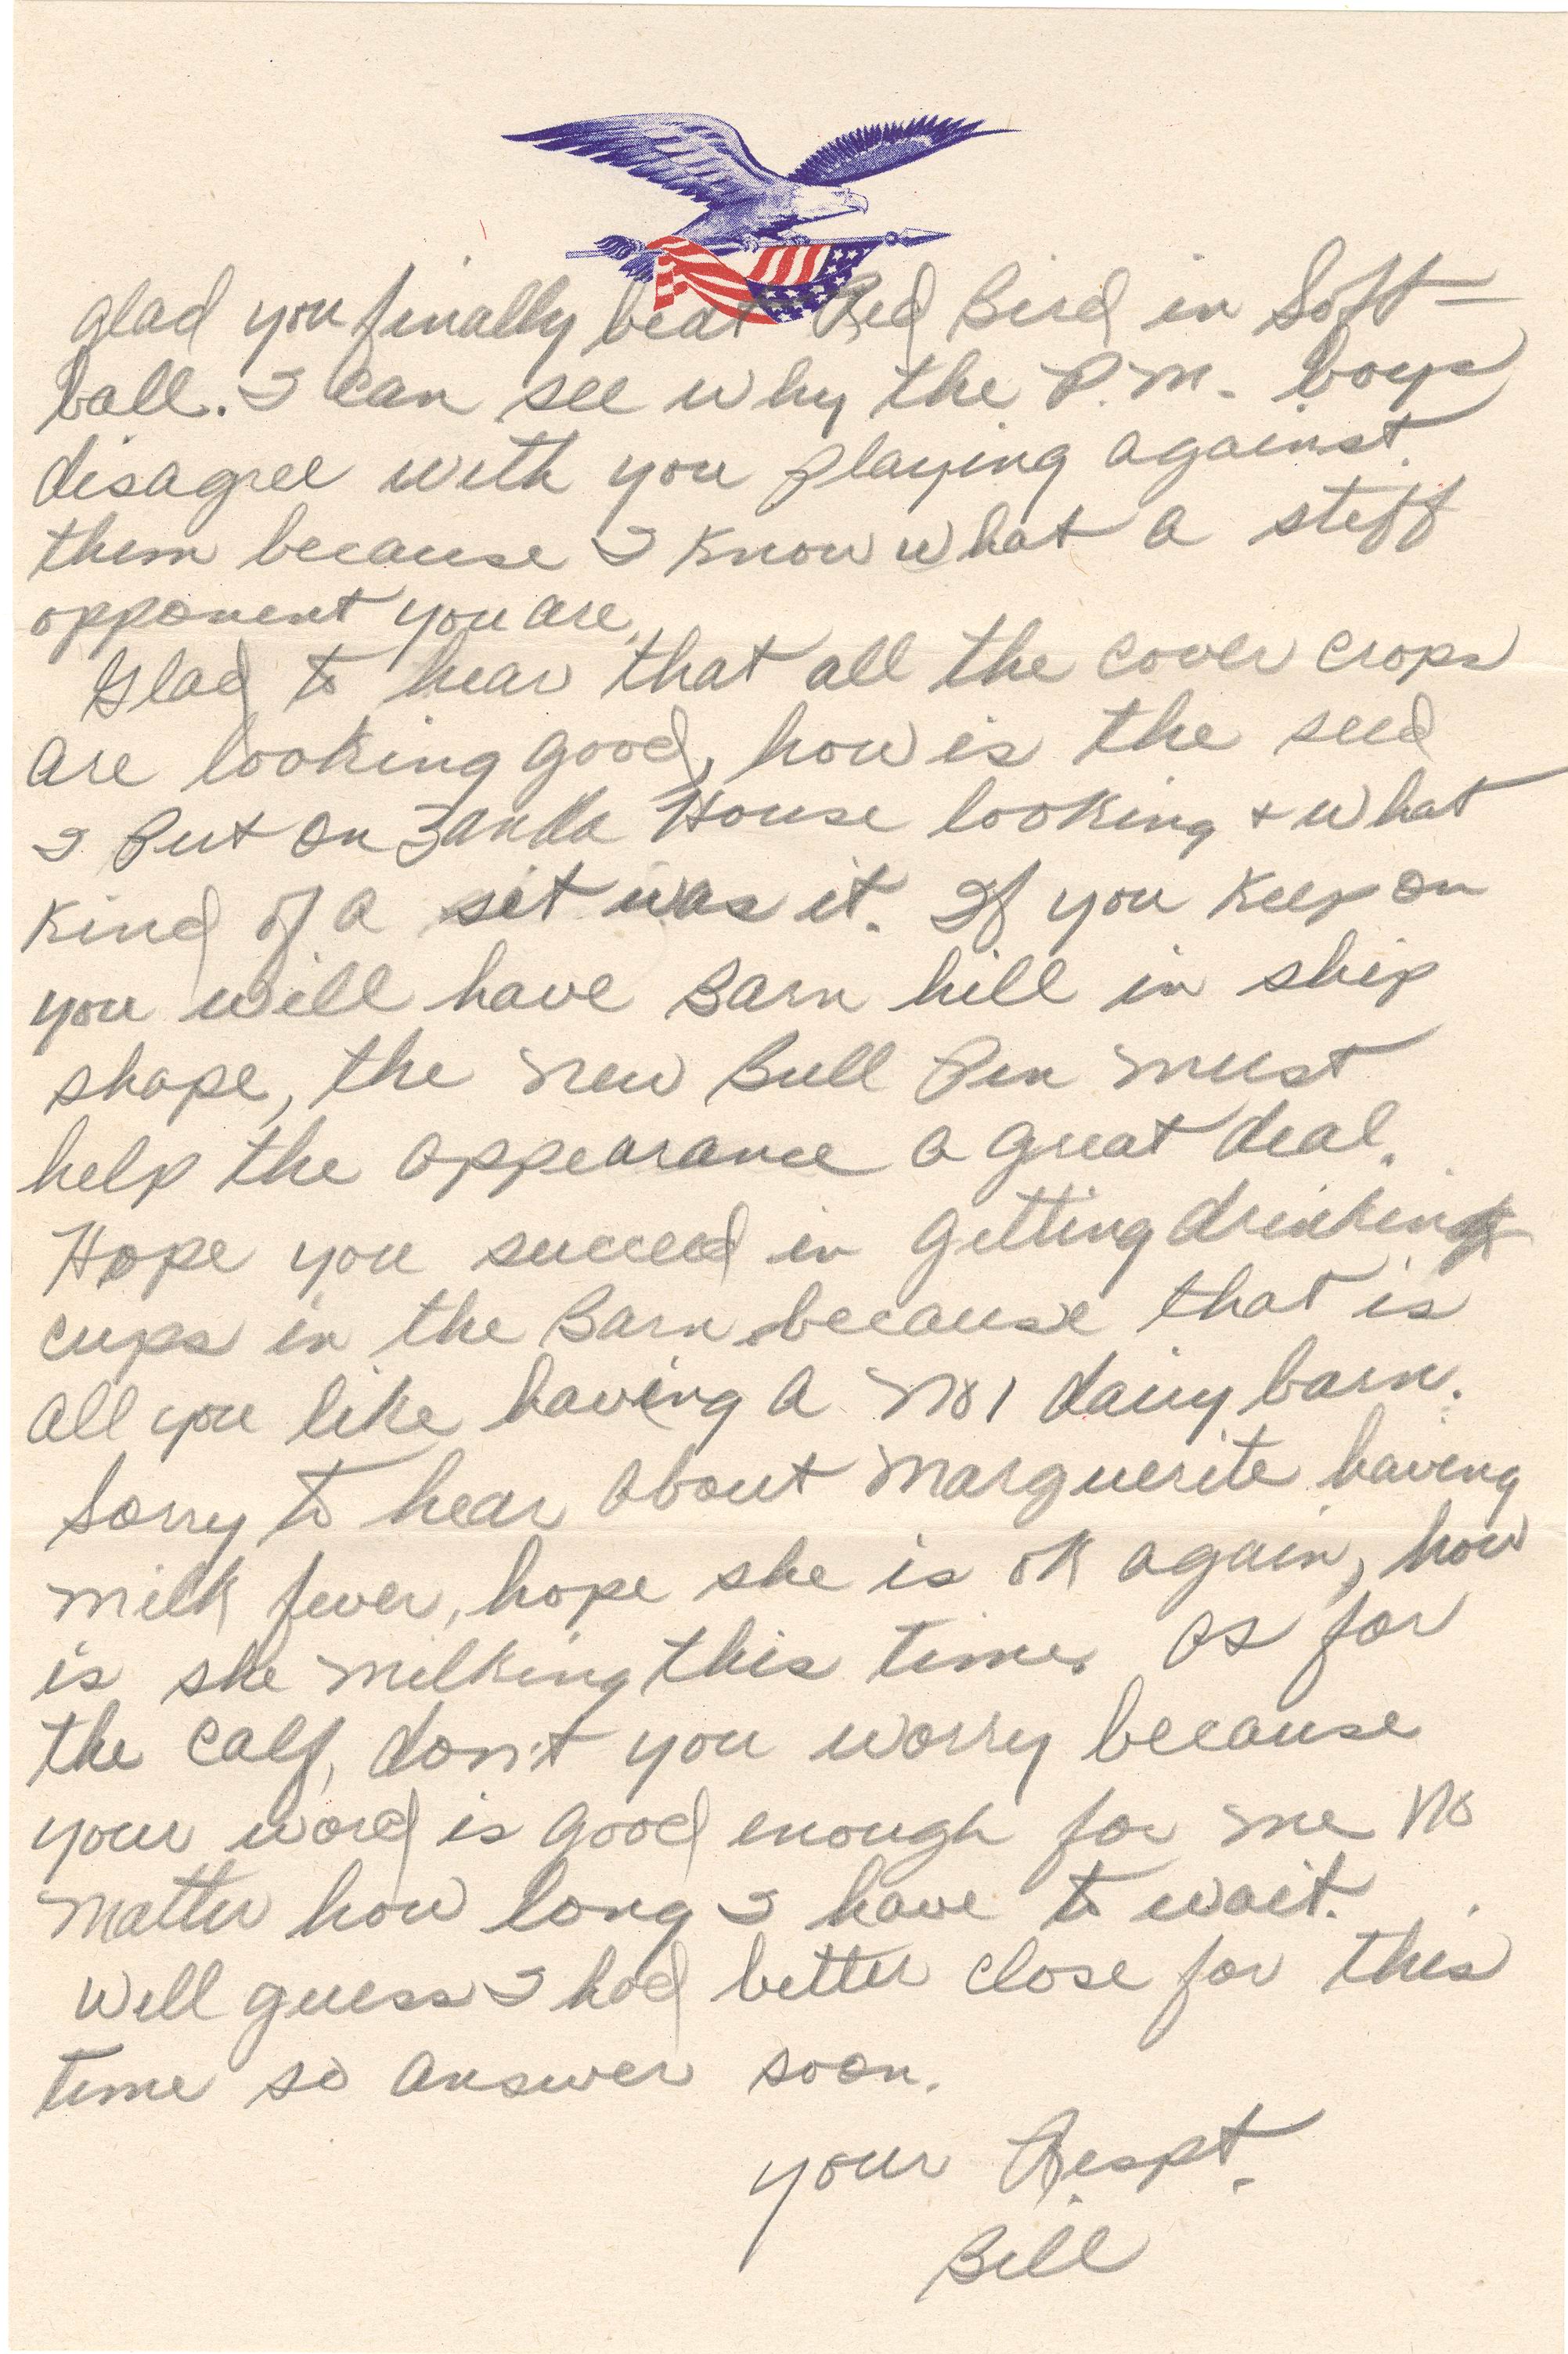 glad you finally beat Red Bird in Soft=
ball. I can see why the P.M. boys
disagree with you playing against
them because I know what a stiff
opponent you are.
Glad to hear that all the cover crops
are looking good, how is the seed
I Put on House looking + what
kind of a set was it. If you keep on
you will have Barn hill in ship
shape, the new Bull Pen must
help the appearance a great deal.
Hope you succeed in getting drinking
cups in the Barn because that is
all you like having a No 1 dairy barn.
Sorry to hear about Marguerite having
milk fever, hope she is ok again, how
is she milking this time. As for
the calf, don't you worry because
your word is good enough for me no
matter how long I have to wait.
Well guess I had better close for this
time so answer soon.
Your Respt.
Bill